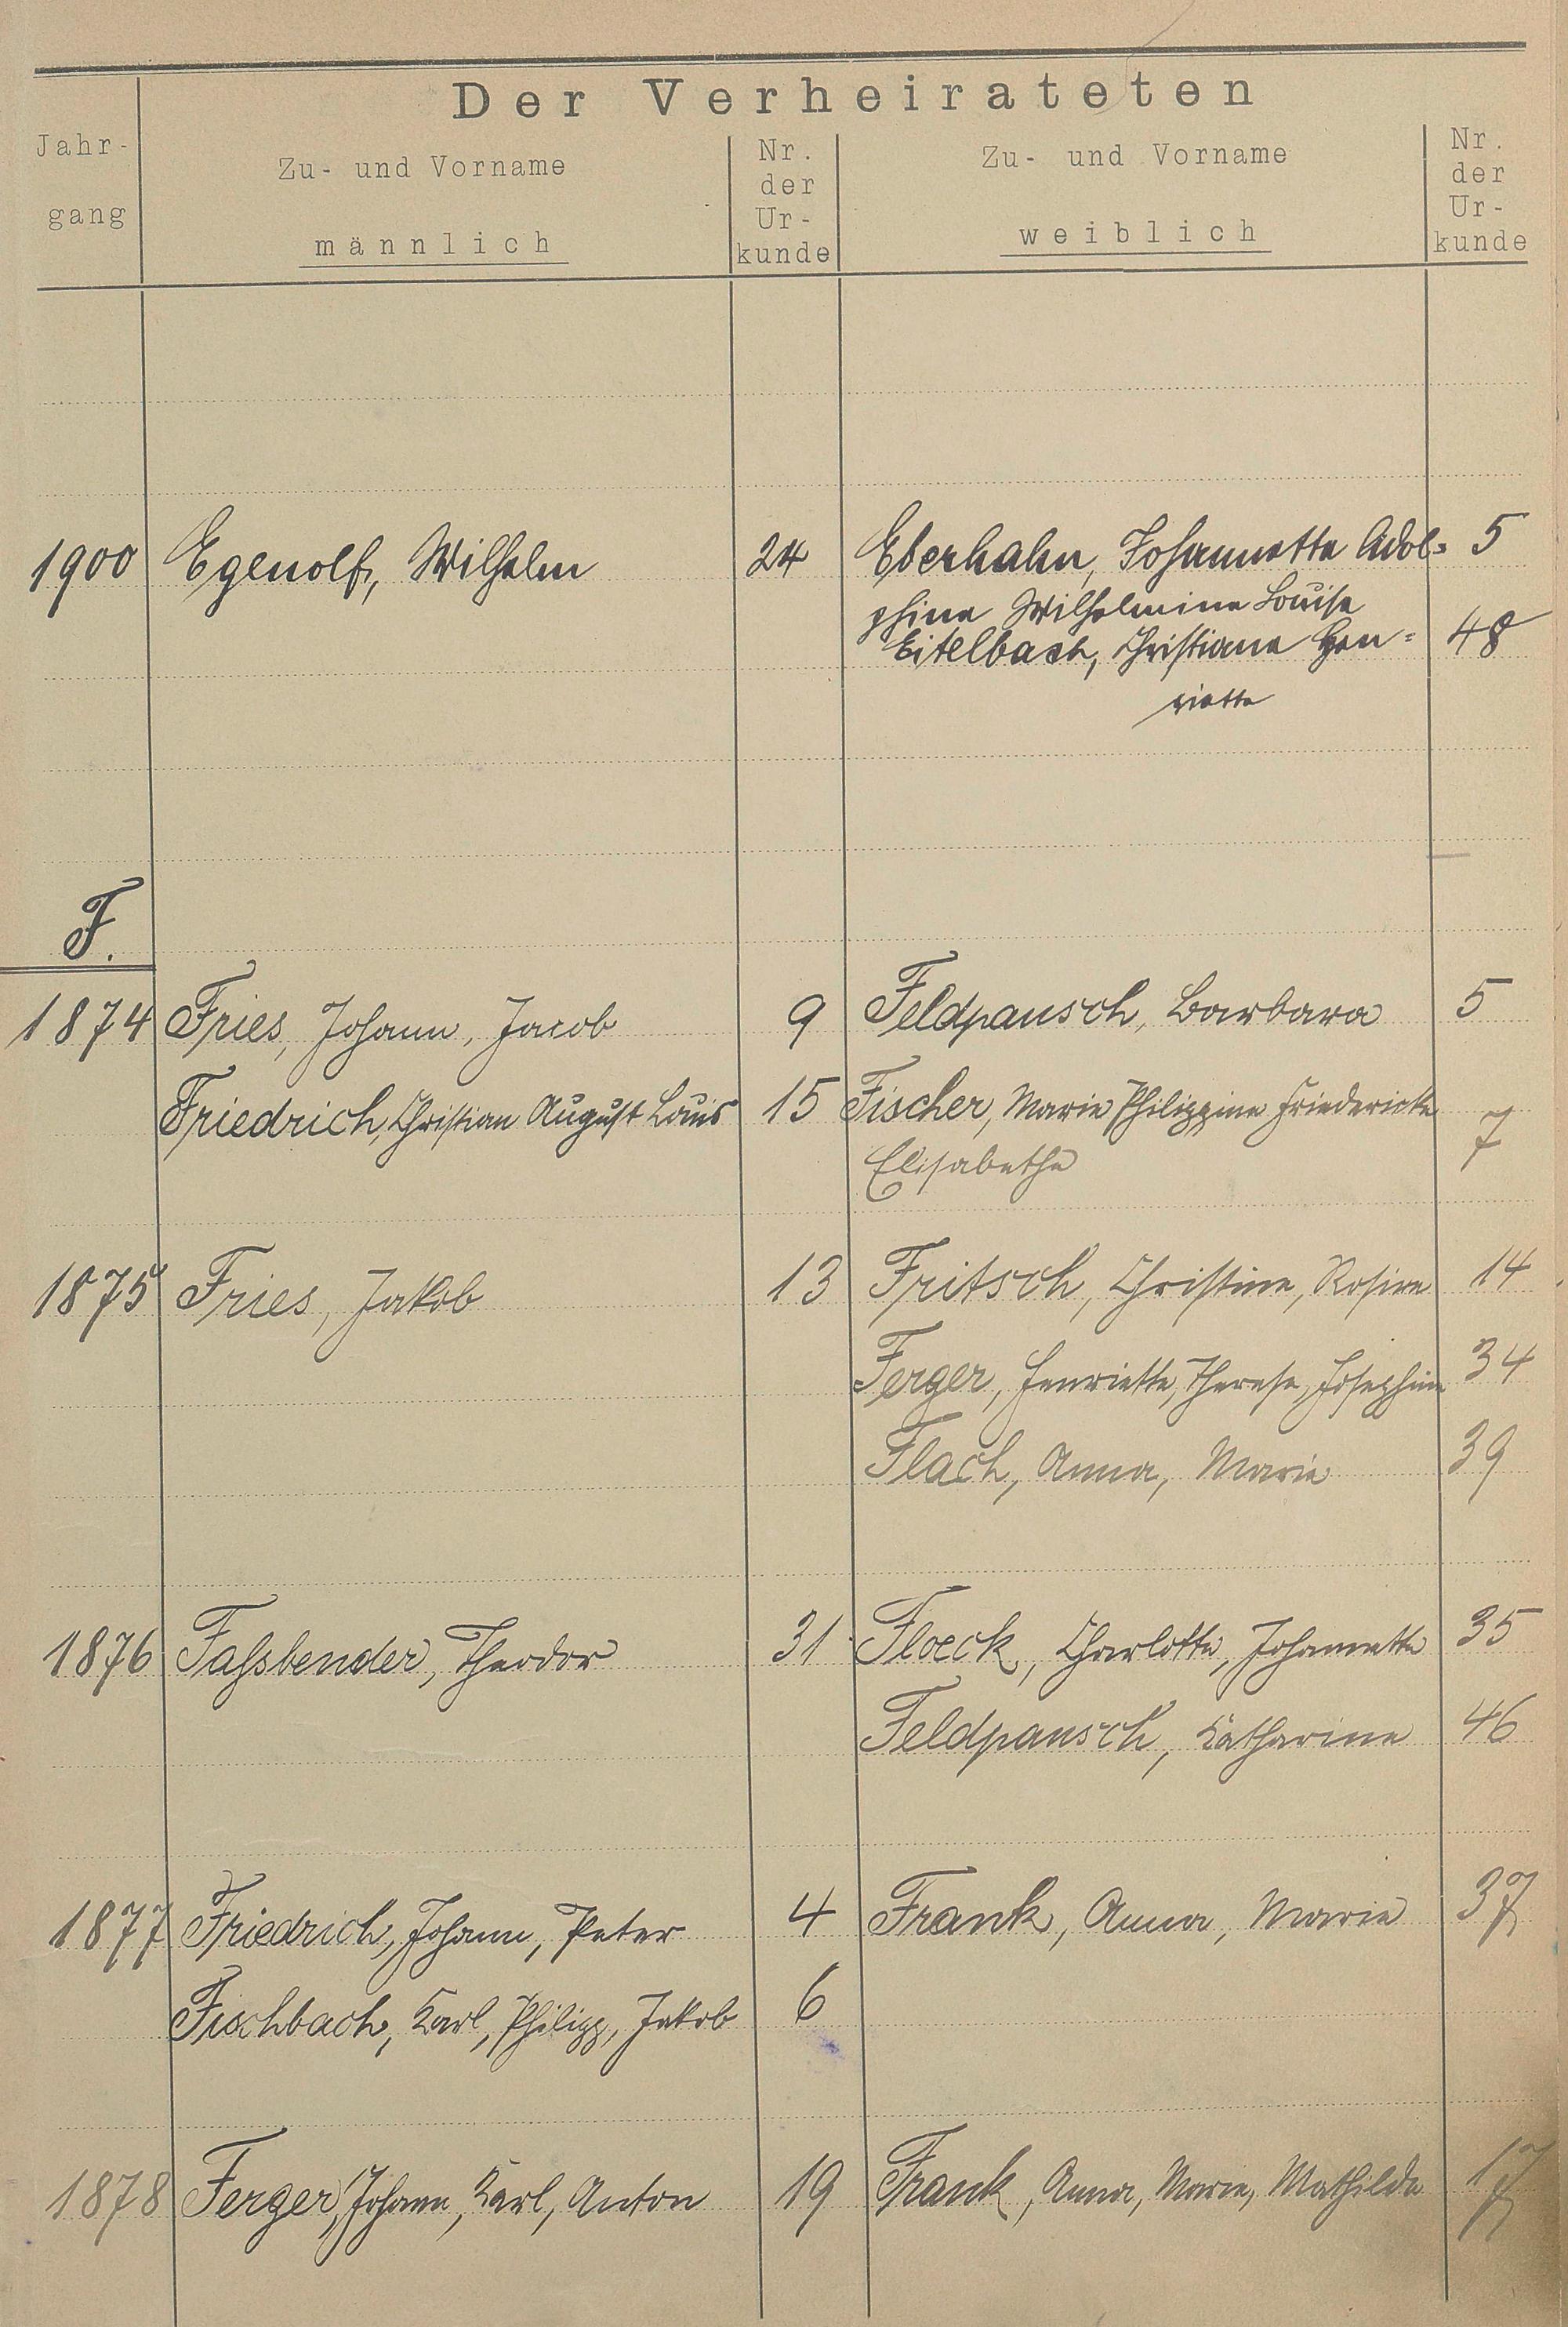 Der Verheirateten
Jahr-
gang
Zu- und Vorname
männlich
Nr.
der
Ur-
kunde
Zu- und Vorname
weiblich
Nr.
der
Ur-
kunde
1900 Egenolf, Wilhelm 24 Eberhahn, Johannette Adol= 5
phine Wilhelmine Louise
Eitelbach, Christiane Hen= 48
riette
F.
1874 Fries, Johann, Jacob 9 Feldpausch, Barbara 5
Friedrich, Christian August Louis 15 Fischer, Marie Philippine Friedericke 7
Elisabethe
1875 Fries, Jakob 13 Fritsch, Christine, Rosine 14
Ferger, Henriette, Therese, Josephine 34
Flach, Anna, Marie 39
1876 Faßbender, Theodor 31 Floeck, Charlotte, Johannette 35
Feldpausch, Katharine 46
1877 Friedrich, Johann, Peter 4 Frank, Anna, Marie 37
Fischbach, Karl, Philipp, Jakob 6
1878 Ferger, Johann, Karl, Anton 19 Frank, Anna, Marie, Mathilde 17